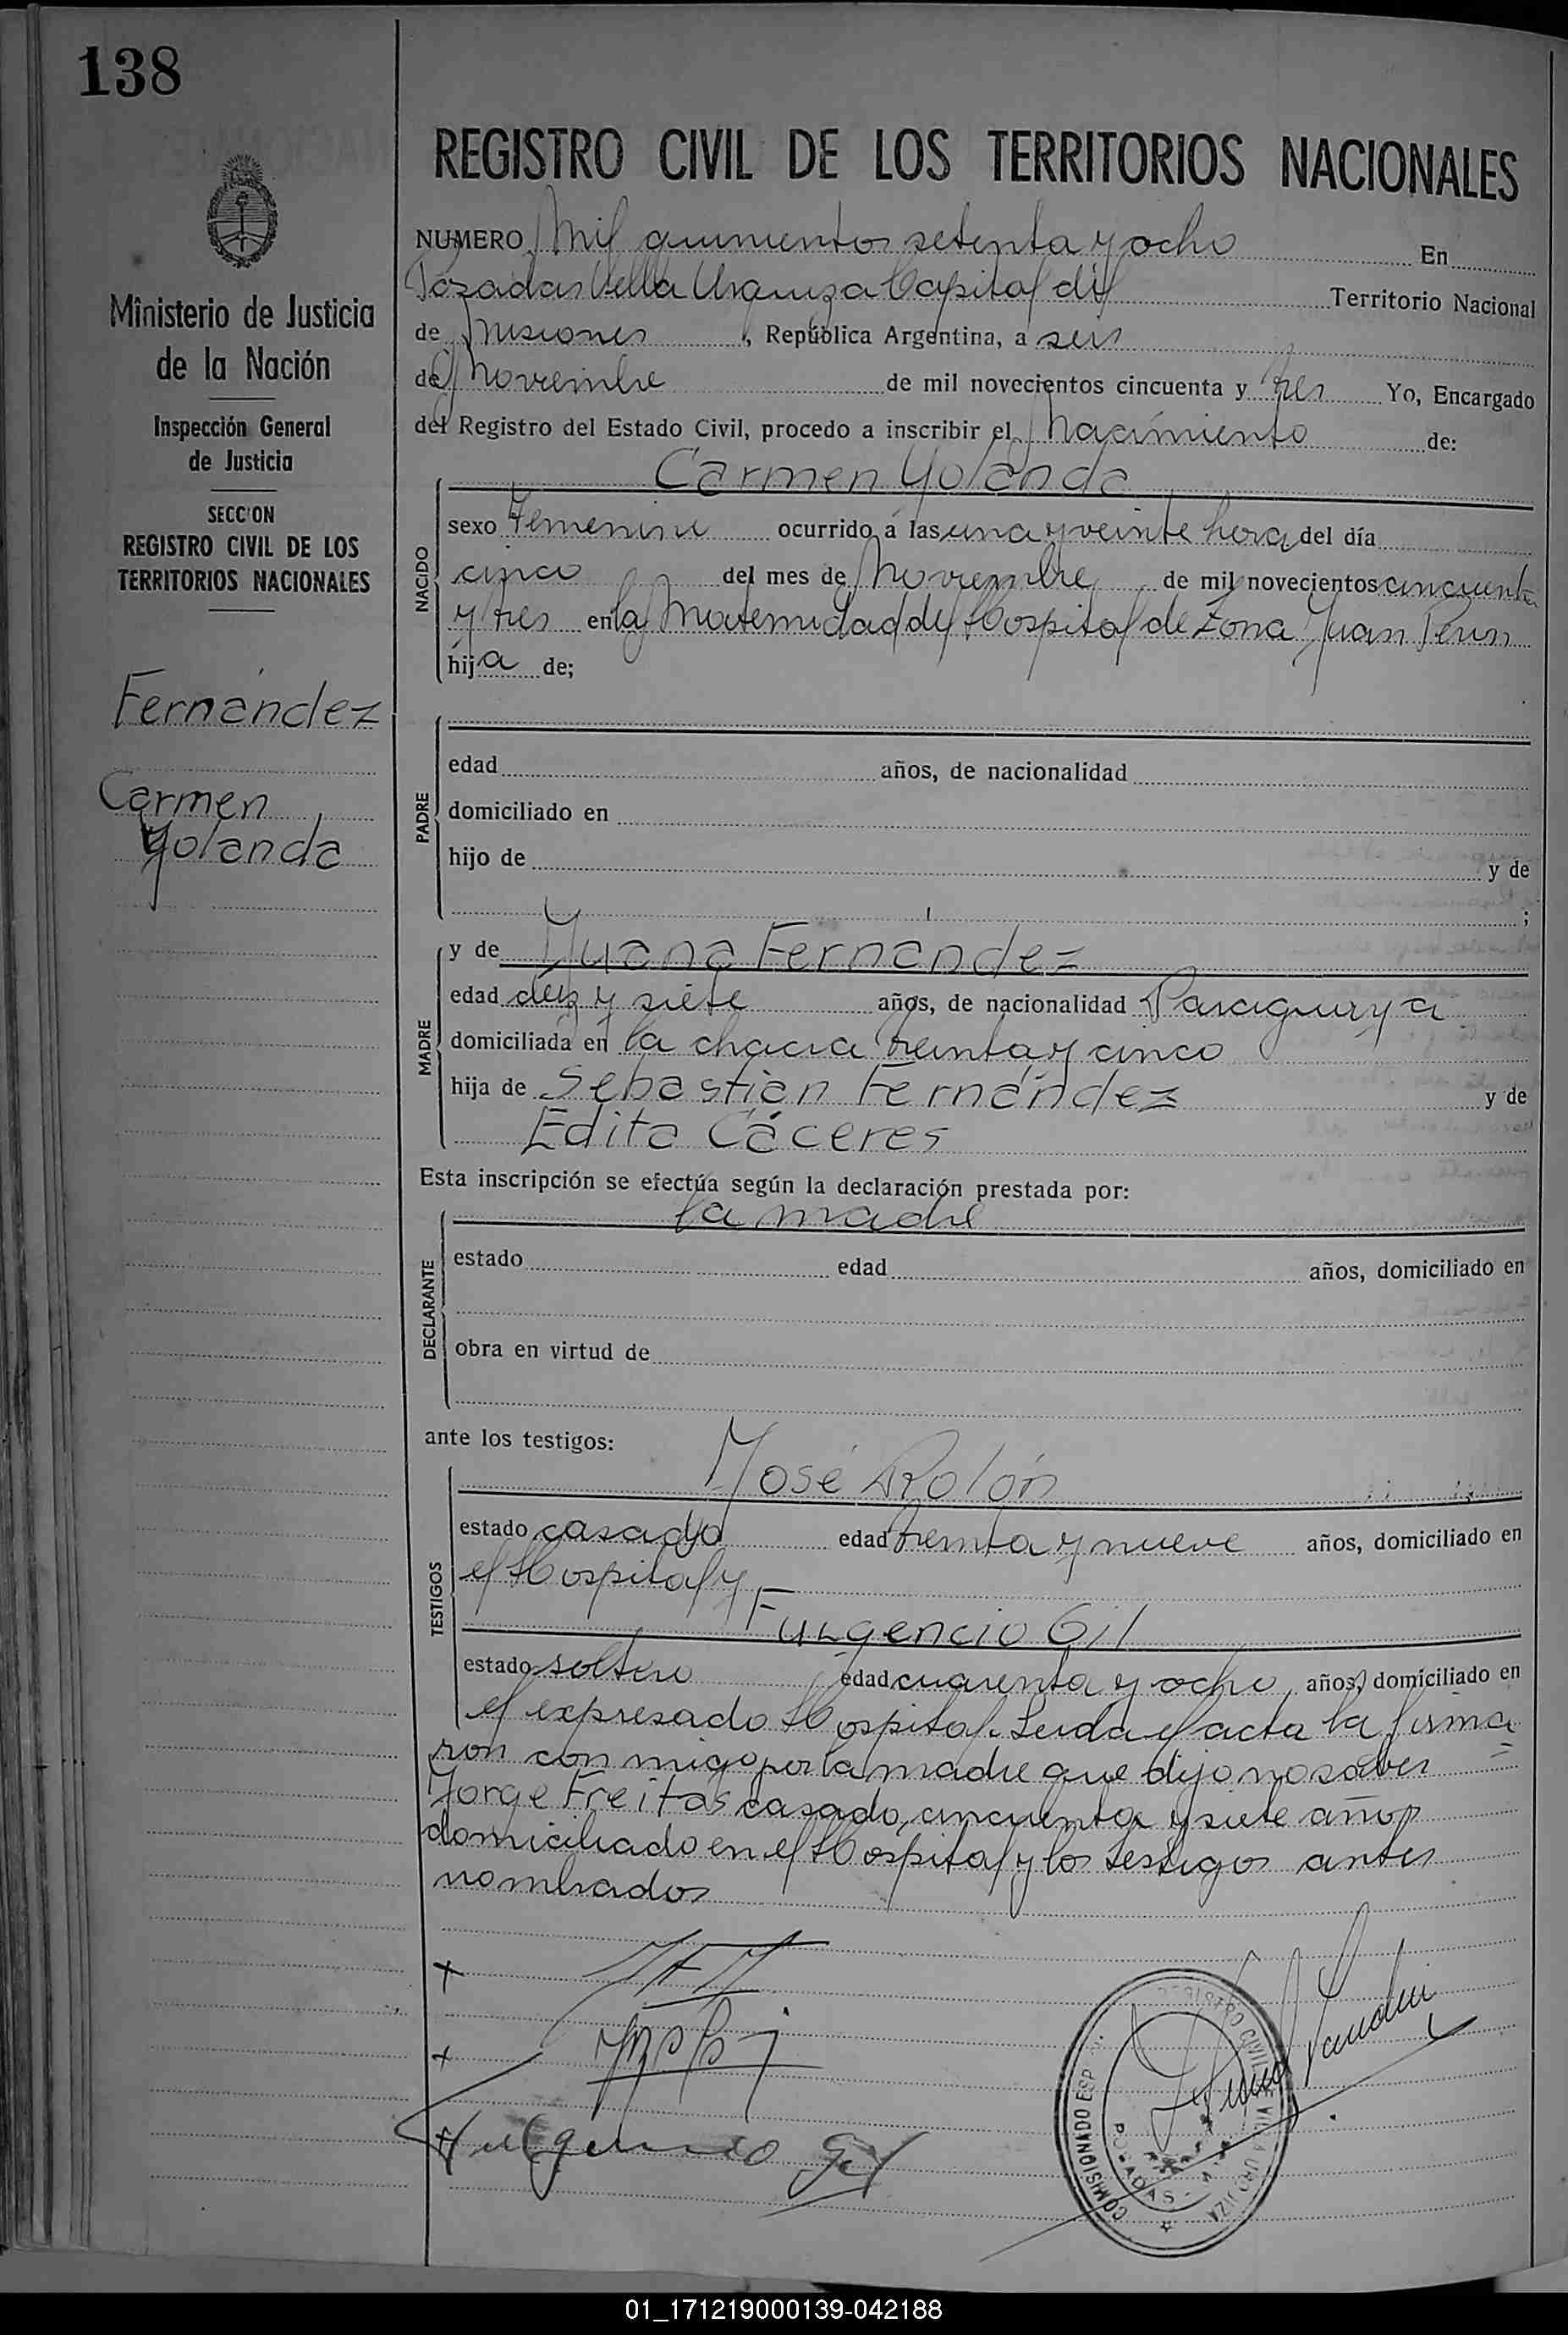 138
REGISTRO CIVIL DE LOS TERRITORIOS NACIONALES
Ministerio de Justicia
de la Nación
Inspección General
de Justicia
SECCION
REGISTRO CIVIL DE LOS
TERRITORIOS NACIONALES
Fernández
Carmen
Yolanda
NUMERO Mil quinientos setenta y ocho En
Posadas Villa Urquiza Capital del Territorio Nacional
de Misiones, República Argentina, a seis
de Noviembre de mil novecientos cincuenta y tres Yo, Encargado
del Registro del Estado Civil, procedo a inscribir el Nacimiento de:
Carmen Yolanda
NACIDO
sexo Femenino ocurrido a las una y veinte hora del día
cinco del mes de Noviembre de mil novecientos cincuenta
y tres en la Maternidad del Hospital de Zona Juan Perón
hija de;
PADRE
edad años, de nacionalidad
domiciliado en
hijo de y de
;
MADRE
y de Juana Fernández
edad diez y siete años, de nacionalidad Paraguaya
domiciliada en la chacra treinta y cinco
hija de Sebastián Fernández y de
Edita Cáceres
Esta inscripción se efectúa según la declaración prestada por:
la madre
DECLARANTE
estado edad años, domiciliado en
obra en virtud de
ante los testigos:
José Rolón
TESTIGOS
estado casado edad treinta y nueve años, domiciliado en
el Hospital y
Fulgencio Gil
estado soltero edad cuarenta y ocho años, domiciliado en
el expresado Hospital. Leida el acta la firma
ron con migo por la madre que dijo no saber =
Jorge Freitas casado, cincuenta y siete años
domiciliado en el Hospital y los testigos antes
nombrados
Fulgencio Gil
REGISTRO CIVIL VILLA URQUIZA
COMISIONADO ESP
POSADAS
01_171219000139-042188